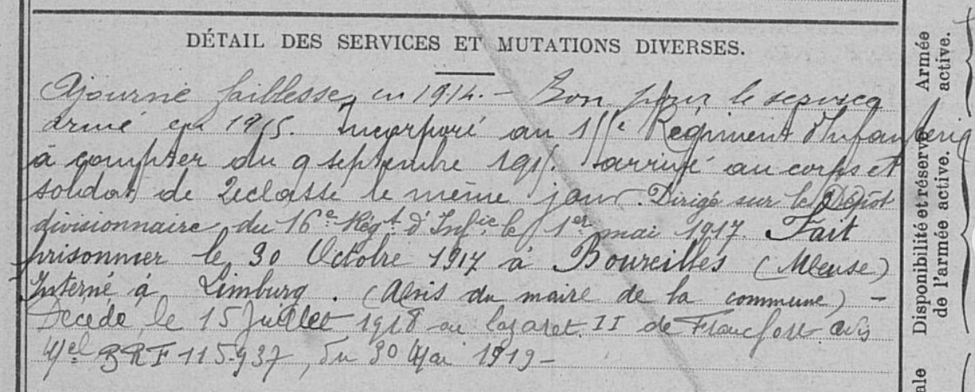 DÉTAIL DES SERVICES ET MUTATIONS DIVERSES.
Ajourné faiblesse en 1914. – Bon pour le service
armé en 1915. Incorporé au Régiment d'Infanterie
à compter du 9 septembre 1915. arrivé au corps et
soldat de 2e classe le même jour. Dirigé sur le Dépôt
divisionnaire du 16e Régt d'Infie le 1er mai 1917. Fait
prisonnier le 30 Octobre 1917 à Boureilles (Meuse)
Interné à Limburg. (Avis du maire de la commune) –
Décédé le 15 Juillet 1918 au lazaret II de Francfort avis
115.937, du 30 Mai 1919 –
Armée
active.
Disponibilité et réserve
de l'armée active.
ale